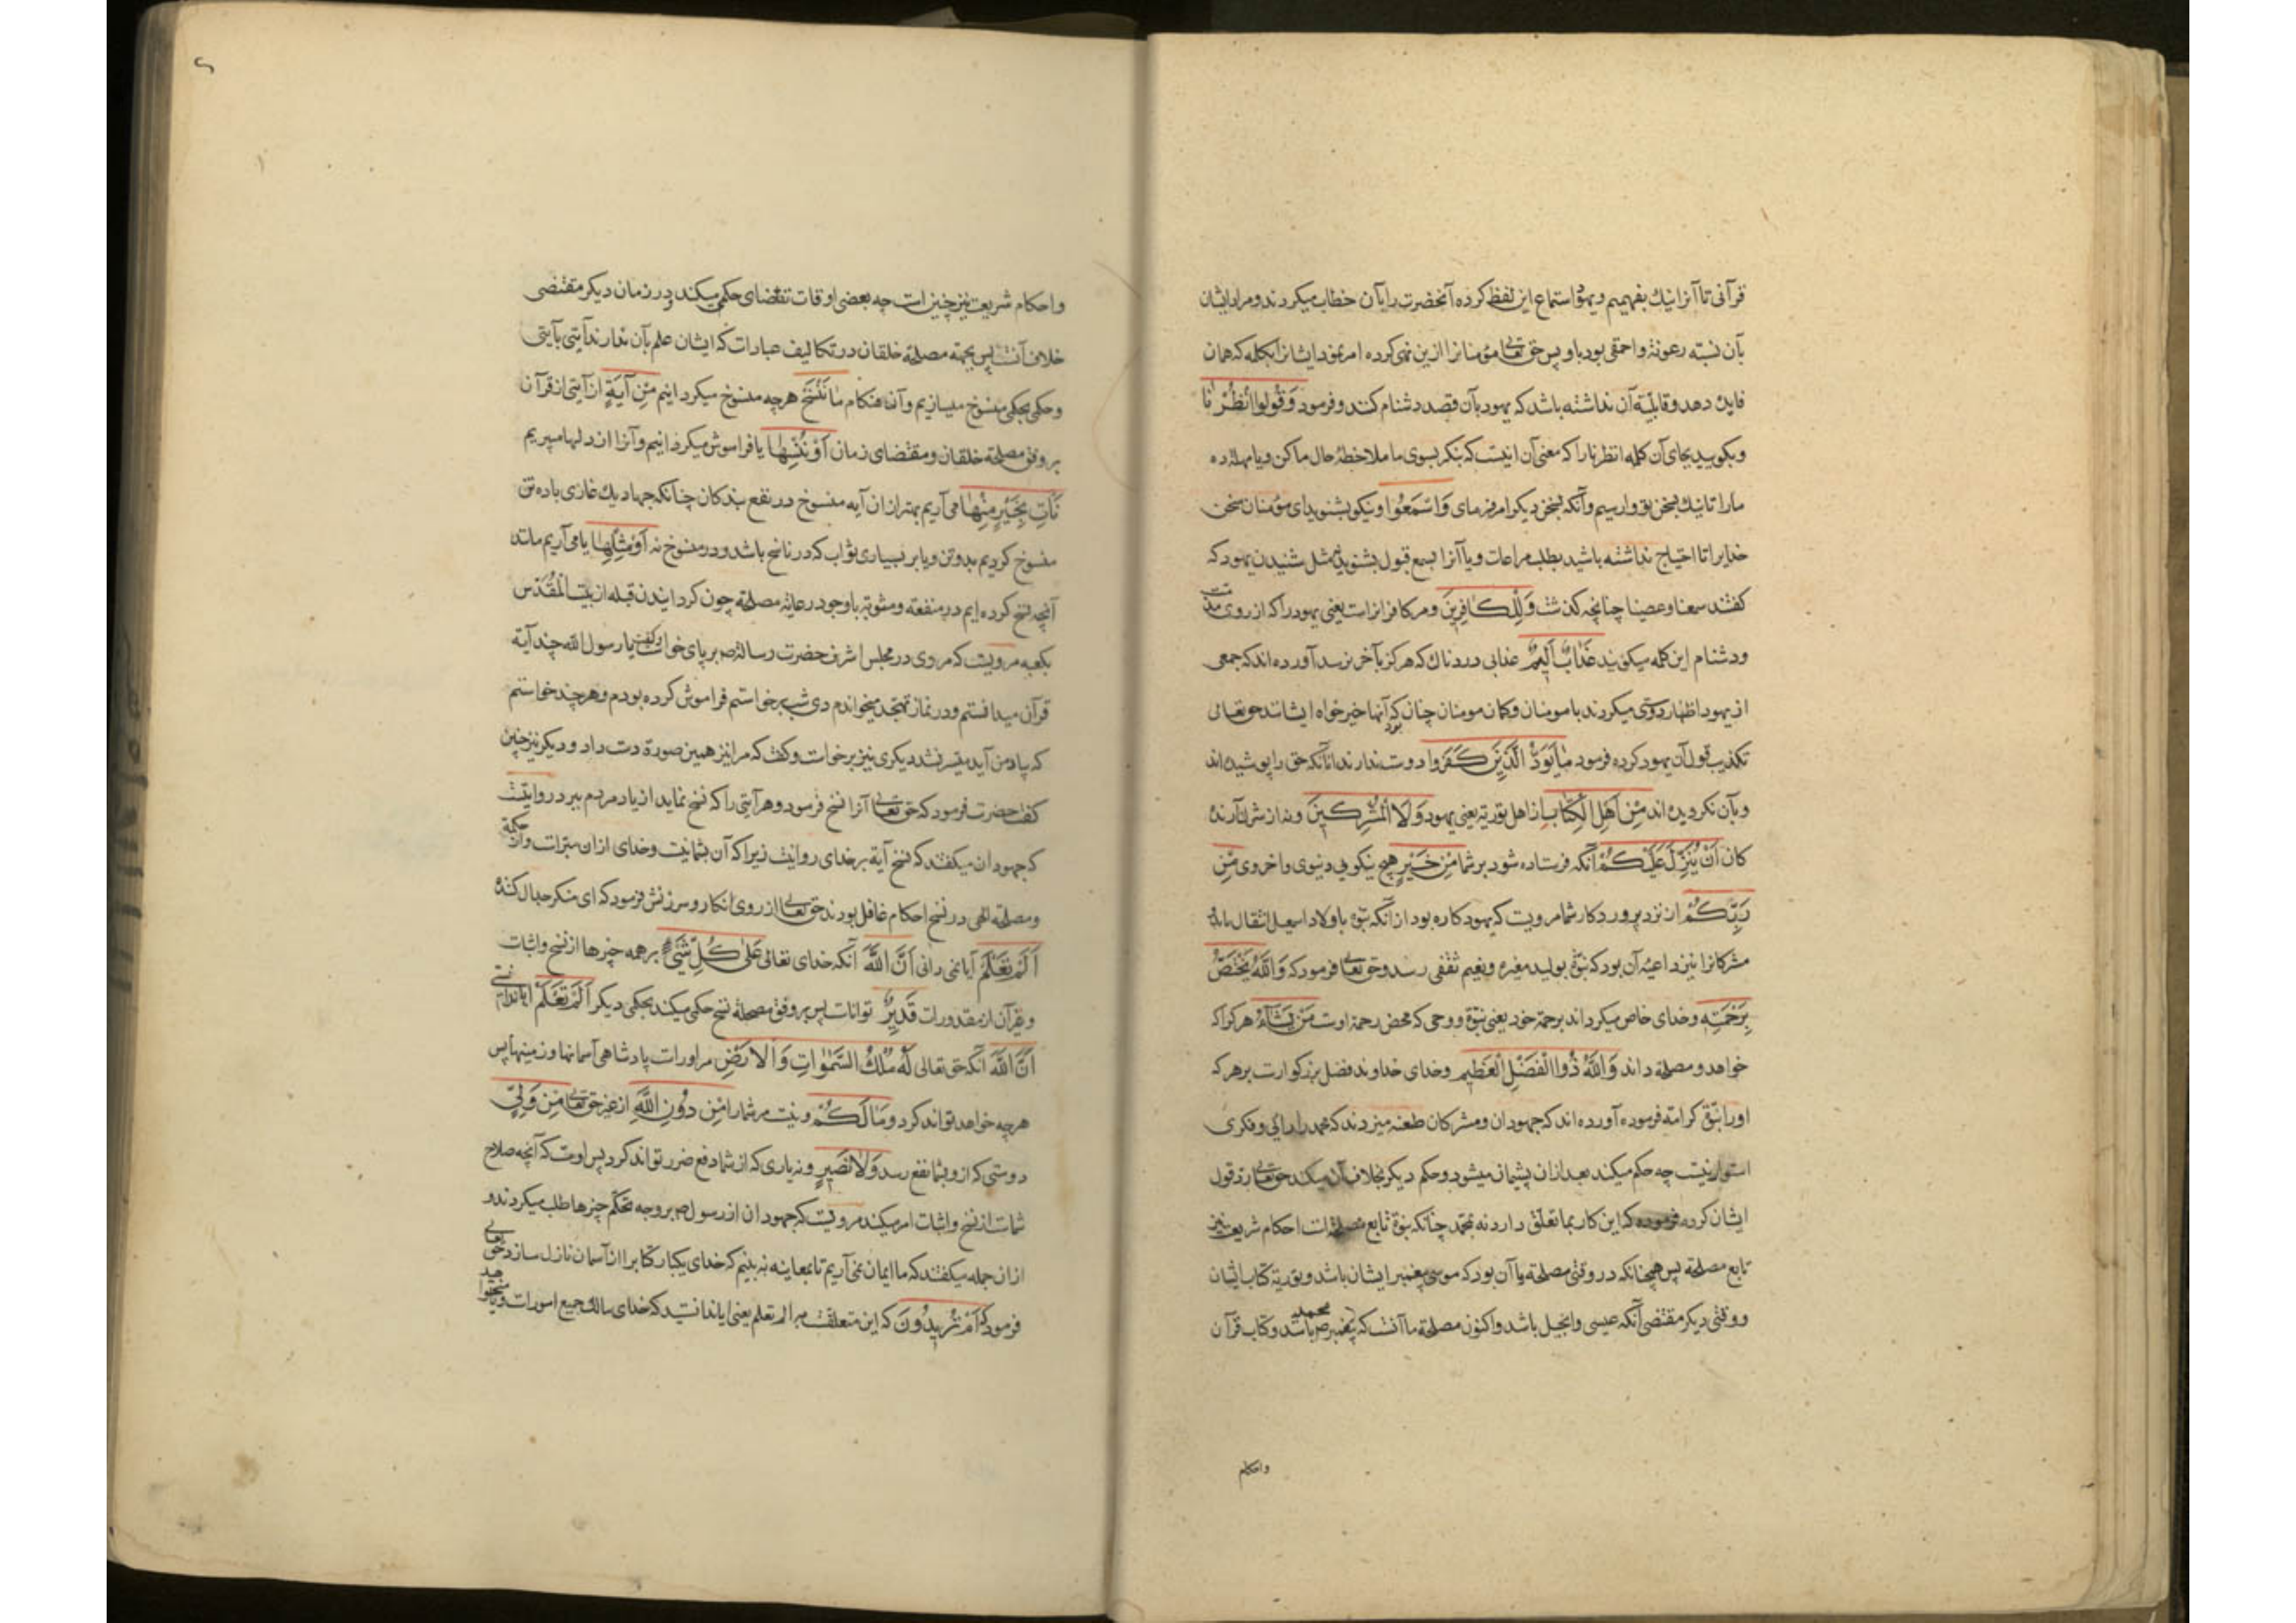 قرآنی تا آنرا نیك بفهمیم و یهود استماع این لفظ کرده آنحضرت را بآن خطاب میکردند و مراد ایشان
بآن نسبة رعونة و احمقی بود باو پس حق تعالی مؤمنانرا ازین نهی کرده امر نمود ایشانرا بکلمه که همان
فایده دهد و قابلیة آن نداشته باشد که یهود بآن قصد دشنام کنند و فرمود وَقُولُوا انْظُرْنَا
و بکویید بجای آن کلمه انظرنا را که معنی آن اینست که بنکر بسوی ما ملاحظهٔ حال ما کن و یا مهلة ده
ما را تا نیك بسخن تو وارسیم و آنکه بسخن دیکر امر فرمای وَاسْمَعُوا و نیکو بشنوید ای مؤمنان سخن
خدایرا تا احتیاج نداشته باشید بطلب مراعات و یا آنرا بسمع قبول بشنوید نه مثل شنیدن یهود که
کفتند سمعنا و عصینا چنانچه کذشت وَلِلْكَافِرِينَ و مر کافرانراست یعنی یهود را که از روی
و دشنام این کلمه میکویند عَذَابٌ أَلِيمٌ عذابی دردناك که هرکز بآخر نرسد آورده اند که جمعی
از یهود اظهار دوستی میکردند با مومنان و کمان مومنان چنان بود که آنها خیرخواه ایشانند حق تعالی
تکذیب قول آن یهود کرده فرمود مَا يَوَدُّ الَّذِينَ كَفَرُوا دوست ندارند آنانکه حق را پوشیده اند
و بآن نکرویده اند مِنْ أَهْلِ الْكِتَابِ از اهل توریة یعنی یهود وَلَا الْمُشْرِكِينَ و نه از شرك آرنده
کان أَنْ يُنَزَّلَ عَلَيْكُمْ آنکه فرستاده شود بر شما مِنْ خَيْرٍ هیچ نیکویی دنیوی و اخروی مِنْ
رَبِّكُمْ از نزد پروردکار شما مرویست که یهود کاره بود از آنکه نبوة باولاد اسمعیل انتقال یابد
مشرکانرا نیز داعیهٔ آن بود که نبوة بولید مغیره و نعیم ثقفی رسد و حق تعالی فرمود که وَاللَّهُ يَخْتَصُّ
بِرَحْمَتِهِ و خدای خاص میکرداند برحمة خود یعنی نبوة و وحی که محض رحمة اوست مَنْ يَشَاءُ هر کرا که
خواهد و مصلحة داند وَاللَّهُ ذُوا الْفَضْلِ الْعَظِيمِ و خدای خداوند فضل بزرکوارست بر هر که
او را نبوة کرامة فرموده آورده اند که جهودان و مشرکان طعنه میزدند که محمد را رائی و فکری
استوار نیست چه حکم میکند بعد از ان پشیمان میشود و حکم دیکر بخلاف آن میکند حق تعالی رد قول
ایشان کرده فرموده که این کار بما تعلق دارد نه بمحمد چنانکه نبوة تابع مصلحتست احکام شریعت نیز
تابع مصلحة پس همچنانکه در وقتی مصلحة با آن بود که موسی پیغمبر ایشان باشد و توریة کتاب ایشان
و وقتی دیکر مقتضی آنکه عیسی و انجیل باشد و اکنون مصلحة ما آنست که پیغمبر محمد ص باشد و کتاب قرآن
و احکام
و احکام شریعت نیز چنین است چه بعضی اوقات تقضای حکمی میکند و در زمان دیکر مقتضی
خلاف آنست پس بجهة مصلحة خلقان در تکالیف عبارات که ایشان علم بآن ندارند آیتی بآیتی
و حکمی بحکمی منسوخ میسازیم و آن هنکام مَا نَنْسَخْ هر چه منسوخ میکردانیم مِنْ آيَةٍ از آیتی از قرآن
بر وفق مصلحة خلقان و مقتضای زمان أَوْ نُنْسِهَا یا فراموش میکردانیم و آنرا از دلها میبریم
نَأْتِ بِخَيْرٍ مِنْهَا می آریم بهتر از ان آیه منسوخ در نفع بندکان چنانکه جهاد یك غازی با ده تن
منسوخ کردیم بدو تن و یا بر بسیاری ثواب که در ناسخ باشد و در منسوخ نه أَوْ مِثْلِهَا یا می آریم مانند
آنچه نسخ کرده ایم در منفعة و مثوبة با وجود رعایة مصلحة چون کردانیدن قبله از بیت المقدس
بکعبه مرویست که مردی در مجلس اشرف حضرت رسالة ص بر پای خواست و کفت یا رسول الله چند آیة
قرآن میدانستم و در نماز تهجد میخواندم دی شب برخواستم فراموش کرده بودم و هر چند خواستم
که بیاد من آید میسر نشد دیکری نیز برخواست و کفت که مرا نیز همین صورة دست داد و دیکر نیز چنین
کفت حضرت فرمود که حق تعالی آنرا نسخ فرمود و هر آیتی را که نسخ نماید از یاد مردم ببرد روایتست
که جهودان میکفتند که نسخ آیة بر خدای روا نیست زیرا که آن پشمانیست و خدای از ان مبراست و از حکمة
و مصلحة الهی در نسخ احکام غافل بودند حق تعالی از روی انکار و سرزنش فرمود که ای منکر
أَلَمْ تَعْلَمْ آیا نمی دانی أَنَّ اللَّهَ آنکه خدای تعالی عَلَى كُلِّ شَيْءٍ بر همه چیزها از نسخ و اثبات
و غیر آن از مقدورات قَدِيرٌ تواناست پس بر وفق مصلحة نسخ حکمی میکند بحکمی دیکر أَلَمْ تَعْلَمْ ایا ندانستی
أَنَّ اللَّهَ آنکه حق تعالی لَهُ مُلْكُ السَّمَوَاتِ وَالْأَرْضِ مر او راست پادشاهی آسمانها و زمینها پس
هر چه خواهد تواند کرد وَمَا لَكُمْ و نیست مر شما را مِنْ دُونِ اللَّهِ از غیر حق تعالی مِنْ وَلِيٍّ
دوستی که از و بشما نفع رسد وَلَا نَصِيرٍ و نه یاری که از شما دفع ضرر تواند کرد پس اوست که آنچه صلاح
شماست از نسخ و اثبات امر میکند مرویست که جهودان از رسول ص بر وجه تحکم چیزها طلب میکردند و
از ان جمله میکفتند که ما ایمان نمی آریم تا بمعاینه نه بینیم که خدای یکبار کتابرا از آسمان نازل سازد حق تعالی
فرمود که أَمْ تُرِيدُونَ که این متعلقست به الم تعلم یعنی ایا ندانستید که خدای مالك جمیع امورست و یا میخواهید